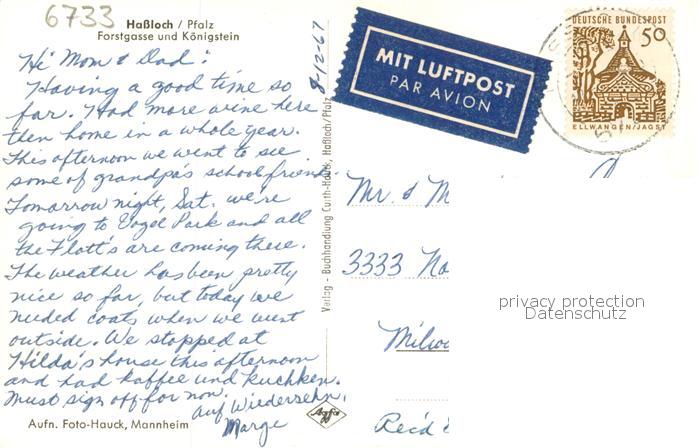 6733
Haßloch / Pfalz
Forstgasse und Königstein
Hi Mom & Dad:
Having a good time so
far. Had more wine here
then home in a whole year.
This afternoon we went to see
some of grandpa's school friends.
Tomorrow night, Sat. we're
going to Vogel Park and all
the Flott's are coming there.
The weather has been pretty
nice so far, but today we
needed coats when we went
outside. We stopped at
Hilda's house this afternoon
and had kaffee und kuchken.
Must sign off for now.
Auf Wiedersehn,
Marge
Aufn. Foto-Hauck, Mannheim
Agfa
Verlag - Buchhandlung Curth-Hauck, Haßloch/Pfalz
8-12-67
MIT LUFTPOST
PAR AVION
DEUTSCHE BUNDESPOST
50
ELLWANGEN/JAGST
Mr. & M
3333 No
Milw
Rec'd
privacy protection
Datenschutz